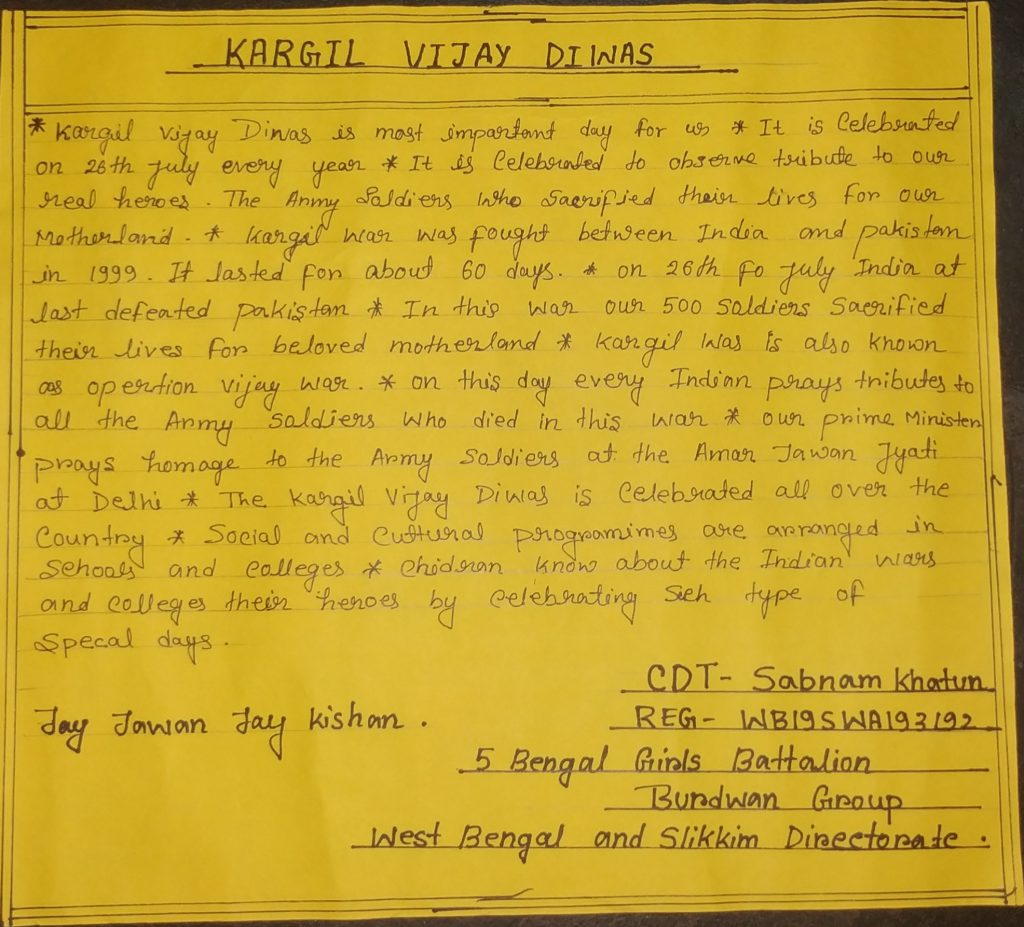 KARGIL VIJAY DIWAS
* Kargil Vijay Diwas is most important day for us * It is Celebrated
on 26th July every year * It is Celebrated to observe tribute to our
real heroes. The Army Soldiers Who Sacrified their lives for our
Motherland. * Kargil War was fought between India and pakistan
in 1999. It lasted for about 60 days. * on 26th fo July India at
last defeated pakistan * In this war our 500 Soldiers Sacrified
their lives for beloved motherland * Kargil Was is also known
as opertion vijay war. * on this day every Indian prays tributes to
all the Army Soldiers who died in this war * our prime Minister
prays homage to the Army Soldiers at the Amar Jawan Jyati
at Delhi * The Kargil Vijay Diwas is Celebrated all over the
Country * Social and Cultural programimes are arranged in
Schools and Colleges * Chidran know about the Indian wars
and Colleges their heroes by Celebrating Sch type of
Specal days.
CDT- Sabnam Khatun
Jay Jawan Jay Kishan.
REG- WB19SWA193192
5 Bengal Girls Battalion
Burdwan Group
West Bengal and Slikkim Directorate.